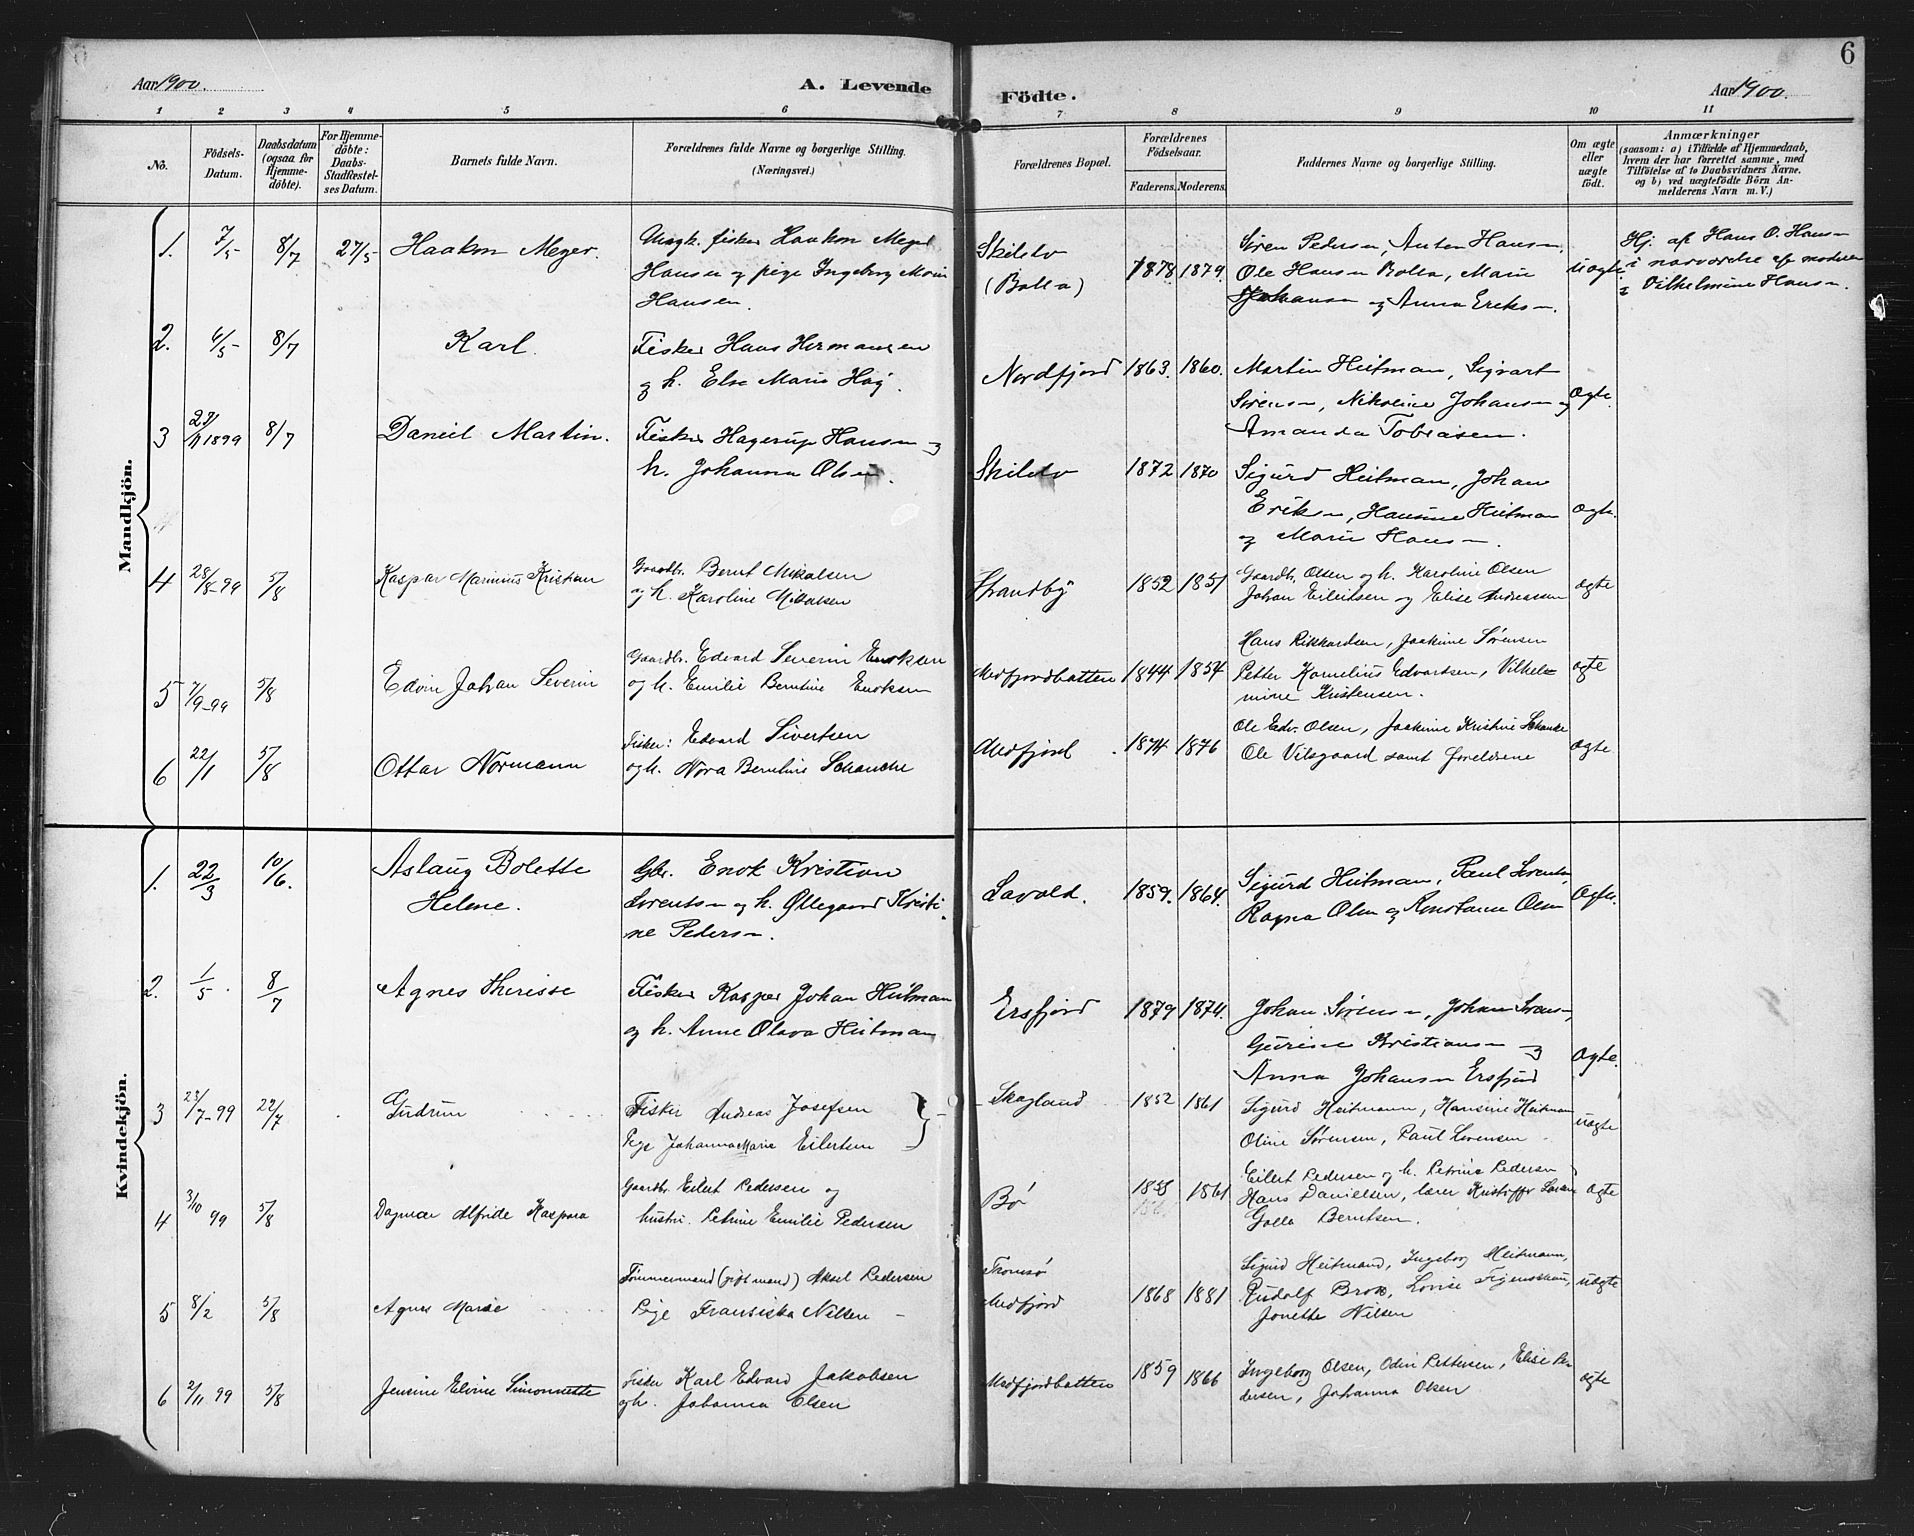 6
Aar 1900.
A. Levende
Födte.
Aar 1900.
1 2 3 4 5 6 7 8 9 10 11
No.
Födsels-
Datum.
Daabsdatum
(ogsaa før
Hjemme-
döbte).
For Hjemme-
döbte:
Daabs-
Stadfæstel-
ses Datum.
Barnets fulde Navn.
Forældrenes fulde Navne og borgerlige Stilling.
(Næringsvei.)
Forældrenes Bopæl.
Forældrenes
Födselsaar.
Faderens. Moderens.
Faddernes Navne og borgerlige Stilling.
Om ægte
eller
uægte
födt.
Anmærkninger
(saasom: a) i Tilfælde af Hjemmedaab,
hvem der har forrettet samme, med
Tilföielse af to Daabsvidners Navne.
og b) ved uægtefödte Börn An-
melderens Navn m. V.)
Mandkjön.
1. 7/5 8/7 27/5 Haakon Meger.
Ungk. fisker Haakon Meger
Hansen og pige Ingeborg Marie
Hansen.
Skilsto
(Bolla)
1878 1879.
Søren Pedersen, Anton Hansen,
Ole Hansen Bolla, Marie
Johansen og Anna Eriksen.
uægte
Hj. af Hans O. Hansen
i nærværelse af moderen
& Vilhelmine Hansen.
2. 6/5 8/7 Karl.
Fisker Hans Hermansen
og h. Else Marie Høg.
Nordfjord 1863. 1860.
Martin Heitman, Sigvart
Sørensen, Nikoline Johansen og
Amanda Tobiasen.
Ægte.
3 23/11 1899 8/7 Daneil Martin.
Fisker Hagerup Hansen og
h. Johanna Olsen.
Skilsto 1872 1870
Sigurd Heitman, Johan
Eriksen, Hansine Heitman
og Marie Hansen.
Ægte.
4 28/8-99 5/8 Kaspar Marinius Kristian
Gaardbr. Bernt Mikalsen
og h. Karoline Mikalsen
Strandby 1852 1851
Gaardbr. Olsen og h. Karoline Olsen
Johan Eilertsen og Elise Andreassen
ægte
5 7/9-99 5/8 Edvin Johan Severin
Gaardbr. Edvard Severin Enoksen
og h. Emilie Berntine Enoksen
Medfjordbotten 1844 1854
Hans Rikkardsen, Joakime Sørensen
Petter Kornelius Edvardsen, Vilhel-
mine Kristensen.
ægte
6 22/1 5/8 Ottar Normann
Fisker: Edvard Sivertsen
og h. Nora Berntine Schanche
Medfjord. 1874 1876
Ole Edv. Olsen, Joakime Kristine Schanke
Ole Vilsgaard samt forældrene
ægte
Kvindekjön.
1. 22/3 10/6. Aslaug Bolette
Helene.
Gbr. Enok Kristian
Lorentsen og h. Øllegaard Kristi-
ne Pedersen.
Lavold. 1859. 1864.
Sigurd Heitman, Paul Lorentsen,
Ragna Olsen og Konstanse Olsen
Ægte.
2. 1/5. 8/7 Agnes Therisse
Fisker Kasper Johan Heitman
og h. Anne Olava Heitman
Ersfjord 1879 1874.
Johan Sørensen, Johan Sørensen,
Gurine Kristiansen og
Anna Johansen Ersfjord
Ægte.
3 23/7-99 22/7 Gudrun
Fisker Andreas Josefsen
Pige Johanna Marie Eilertsen
Skagland 1852 1861
Sigurd Heitmann, Hansine Heitmann
Oline Sørensen, Paul Lorensen
uægte
4 3/10 99 5/8 Dagmar Alfride Kaspara
Gaardbr. Eilert Pedersen og
hustri. Petrine Emilie Pedersen
Bø 1858 1861
Eilert Pedersen og h. Petrine Pedersen
Hans Danielsen, lærer Kristoffer Larsen
Golla Berntsen.
ægte
5 8/2 5/8 Agnes Marie
Tømmermand (gift mand) Aksel Pedersen
Pige Fransiska Nilsen
Tromsø
Medfjord 1868 1881
Sigurd Heitmand, Ingeborg Heitmann,
Rudolf Brox, Lovise
Jonette Nilsen
uægte
6 2/11 99 5/8 Jensine Elvine Simonnette
Fisker Karl Edvard Jakobsen
og h. Johanna Olsen
Medfjordbotten 1859 1866
Ingeborg Olsen, Odin Pettersen, Elise Pe-
dersen, Johanna Olsen
ægte